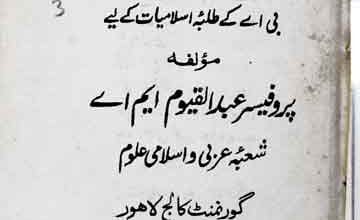 3
بی اے کے طلبۂ اسلامیات کے لیے
مؤلفہ
پروفیسر عبدالقیوم ایم اے
شعبۂ عربی و اسلامی علوم
گورنمنٹ کالج لاہور